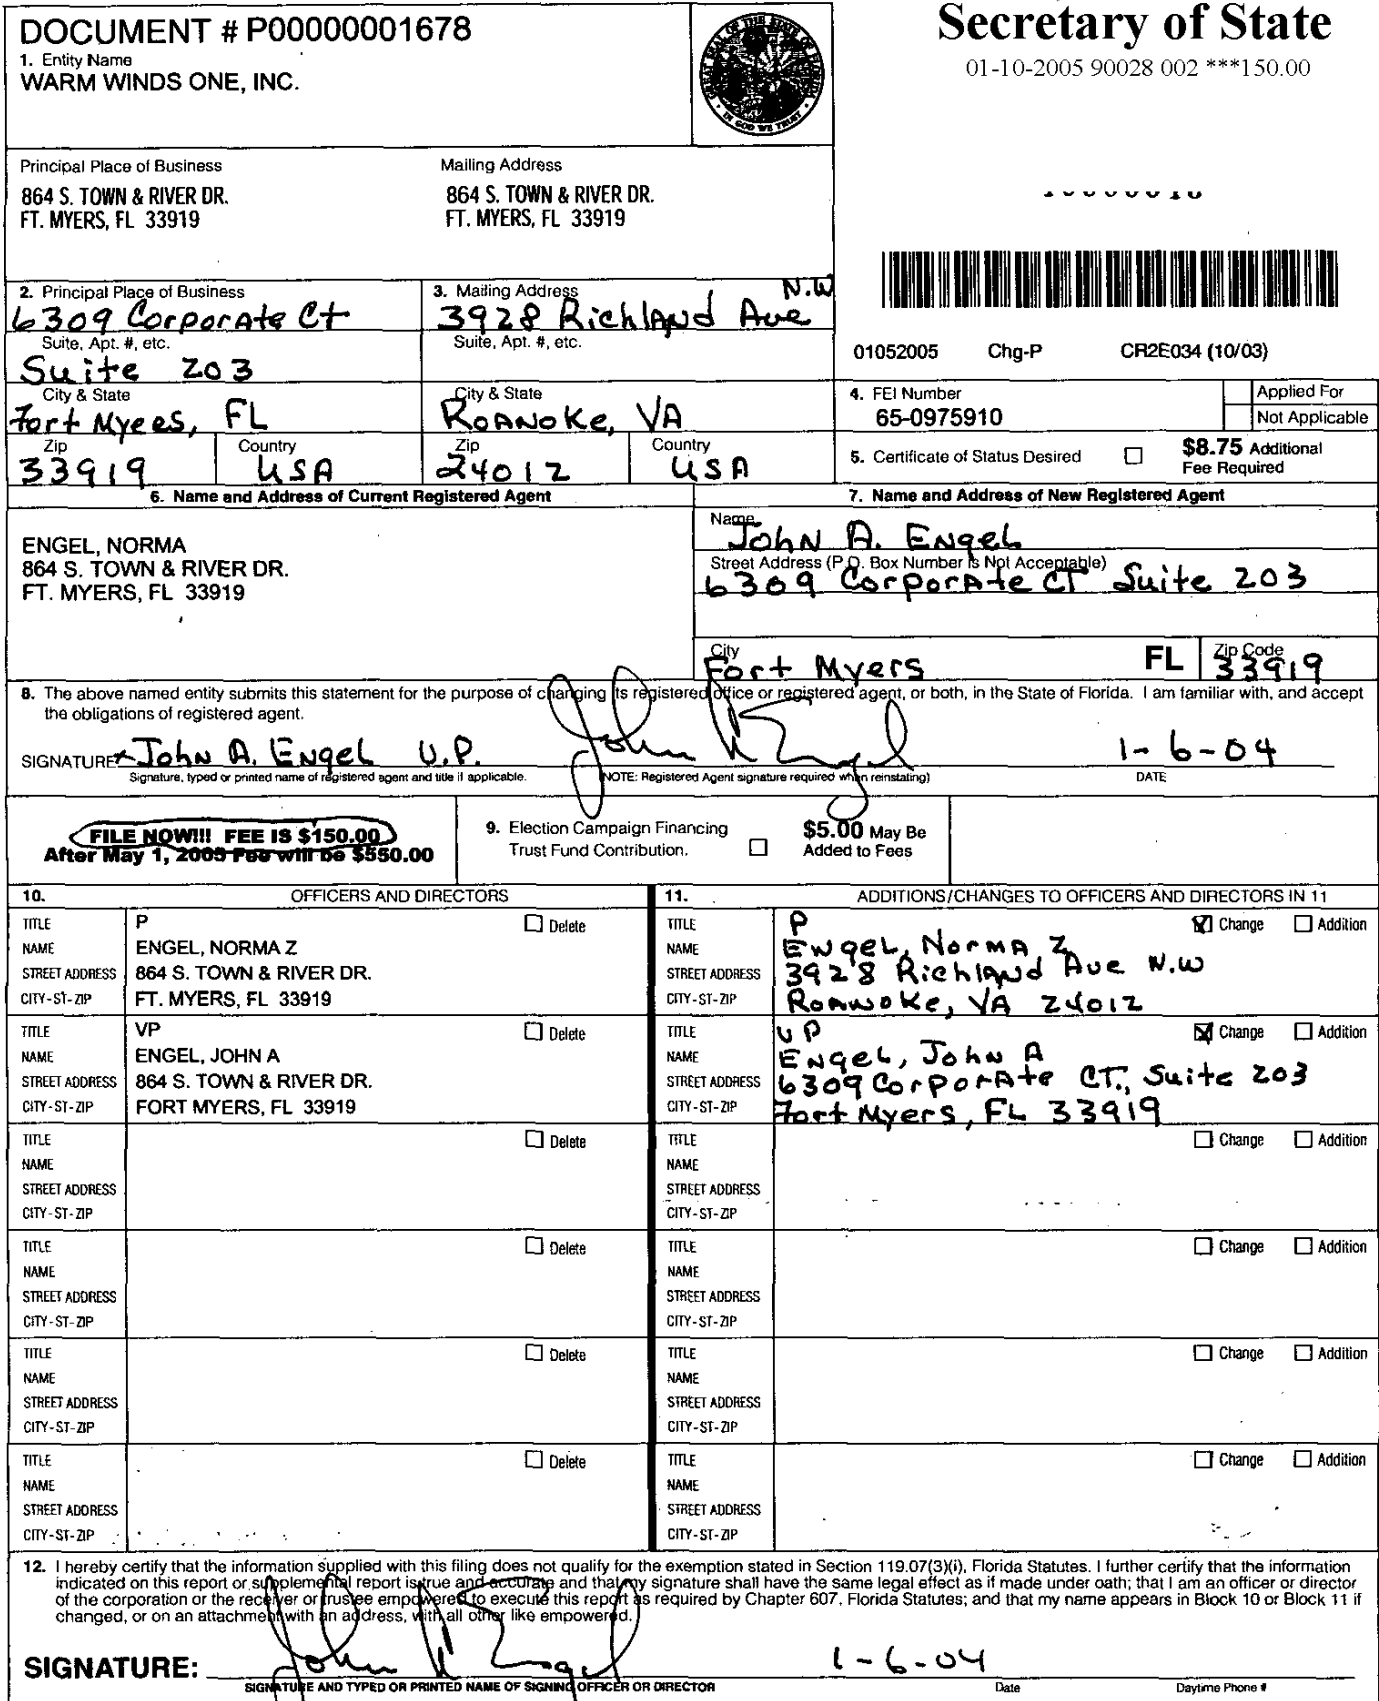 DOCUMENT # P00000001678
1. Entity Name
WARM WINDS ONE, INC.
GREAT SEAL OF THE STATE OF FLORIDA
IN GOD WE TRUST
Secretary of State
01-10-2005 90028 002 ***150.00
Principal Place of Business
864 S. TOWN & RIVER DR.
FT. MYERS, FL 33919
Mailing Address
864 S. TOWN & RIVER DR.
FT. MYERS, FL 33919
2. Principal Place of Business
6309 Corporate Ct
Suite, Apt. #, etc.
Suite 203
City & State
Fort Myers, FL
Zip
33919
Country
USA
3. Mailing Address
N.W
3928 Richland Ave
Suite, Apt. #, etc.
City & State
Roanoke, VA
Zip
24012
Country
USA
01052005 Chg-P CR2E034 (10/03)
4. FEI Number
65-0975910
Applied For
Not Applicable
5. Certificate of Status Desired
$8.75 Additional
Fee Required
6. Name and Address of Current Registered Agent
ENGEL, NORMA
864 S. TOWN & RIVER DR.
FT. MYERS, FL 33919
7. Name and Address of New Registered Agent
Name
John A. Engel
Street Address (P.O. Box Number Is Not Acceptable)
6309 Corporate CT Suite 203
City
Fort Myers
FL
Zip Code
33919
8. The above named entity submits this statement for the purpose of changing its registered office or registered agent, or both, in the State of Florida. I am familiar with, and accept
the obligations of registered agent.
SIGNATURE x John A. Engel V.P. John A Engel 1-6-04
Signature, typed or printed name of registered agent and title if applicable. (NOTE: Registered Agent signature required when reinstating) DATE
FILE NOW!!! FEE IS $150.00
After May 1, 2005 Fee will be $550.00
9. Election Campaign Financing
Trust Fund Contribution.
$5.00 May Be
Added to Fees
10. OFFICERS AND DIRECTORS
TITLE P Delete
NAME ENGEL, NORMA Z
STREET ADDRESS 864 S. TOWN & RIVER DR.
CITY-ST-ZIP FT. MYERS, FL 33919
TITLE VP Delete
NAME ENGEL, JOHN A
STREET ADDRESS 864 S. TOWN & RIVER DR.
CITY-ST-ZIP FORT MYERS, FL 33919
TITLE Delete
NAME
STREET ADDRESS
CITY-ST-ZIP
TITLE Delete
NAME
STREET ADDRESS
CITY-ST-ZIP
TITLE Delete
NAME
STREET ADDRESS
CITY-ST-ZIP
TITLE Delete
NAME
STREET ADDRESS
CITY-ST-ZIP
11. ADDITIONS/CHANGES TO OFFICERS AND DIRECTORS IN 11
TITLE P Change Addition
NAME Engel, Norma Z
STREET ADDRESS 3928 Richland Ave N.W
CITY-ST-ZIP Roanoke, VA 24012
TITLE VP Change Addition
NAME Engel, John A
STREET ADDRESS 6309 Corporate CT., Suite 203
CITY-ST-ZIP Fort Myers, FL 33919
TITLE Change Addition
NAME
STREET ADDRESS
CITY-ST-ZIP
TITLE Change Addition
NAME
STREET ADDRESS
CITY-ST-ZIP
TITLE Change Addition
NAME
STREET ADDRESS
CITY-ST-ZIP
TITLE Change Addition
NAME
STREET ADDRESS
CITY-ST-ZIP
12. I hereby certify that the information supplied with this filing does not qualify for the exemption stated in Section 119.07(3)(i), Florida Statutes. I further certify that the information
indicated on this report or supplemental report is true and accurate and that my signature shall have the same legal effect as if made under oath; that I am an officer or director
of the corporation or the receiver or trustee empowered to execute this report as required by Chapter 607, Florida Statutes; and that my name appears in Block 10 or Block 11 if
changed, or on an attachment with an address, with all other like empowered.
SIGNATURE: John A Engel 1-6-04
SIGNATURE AND TYPED OR PRINTED NAME OF SIGNING OFFICER OR DIRECTOR Date Daytime Phone #